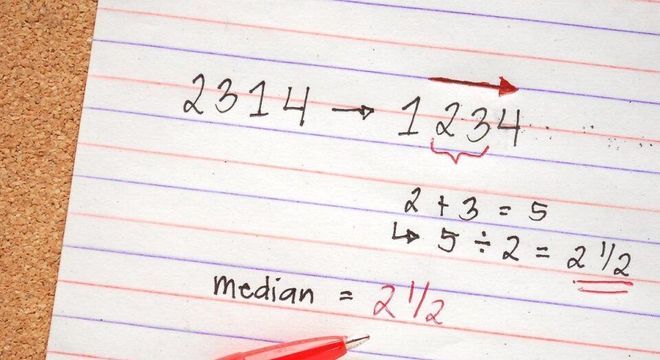 2 3 1 4 → 1 2 3 4
2 + 3 = 5
↳ 5 ÷ 2 = 2 1/2
median = 2 1/2